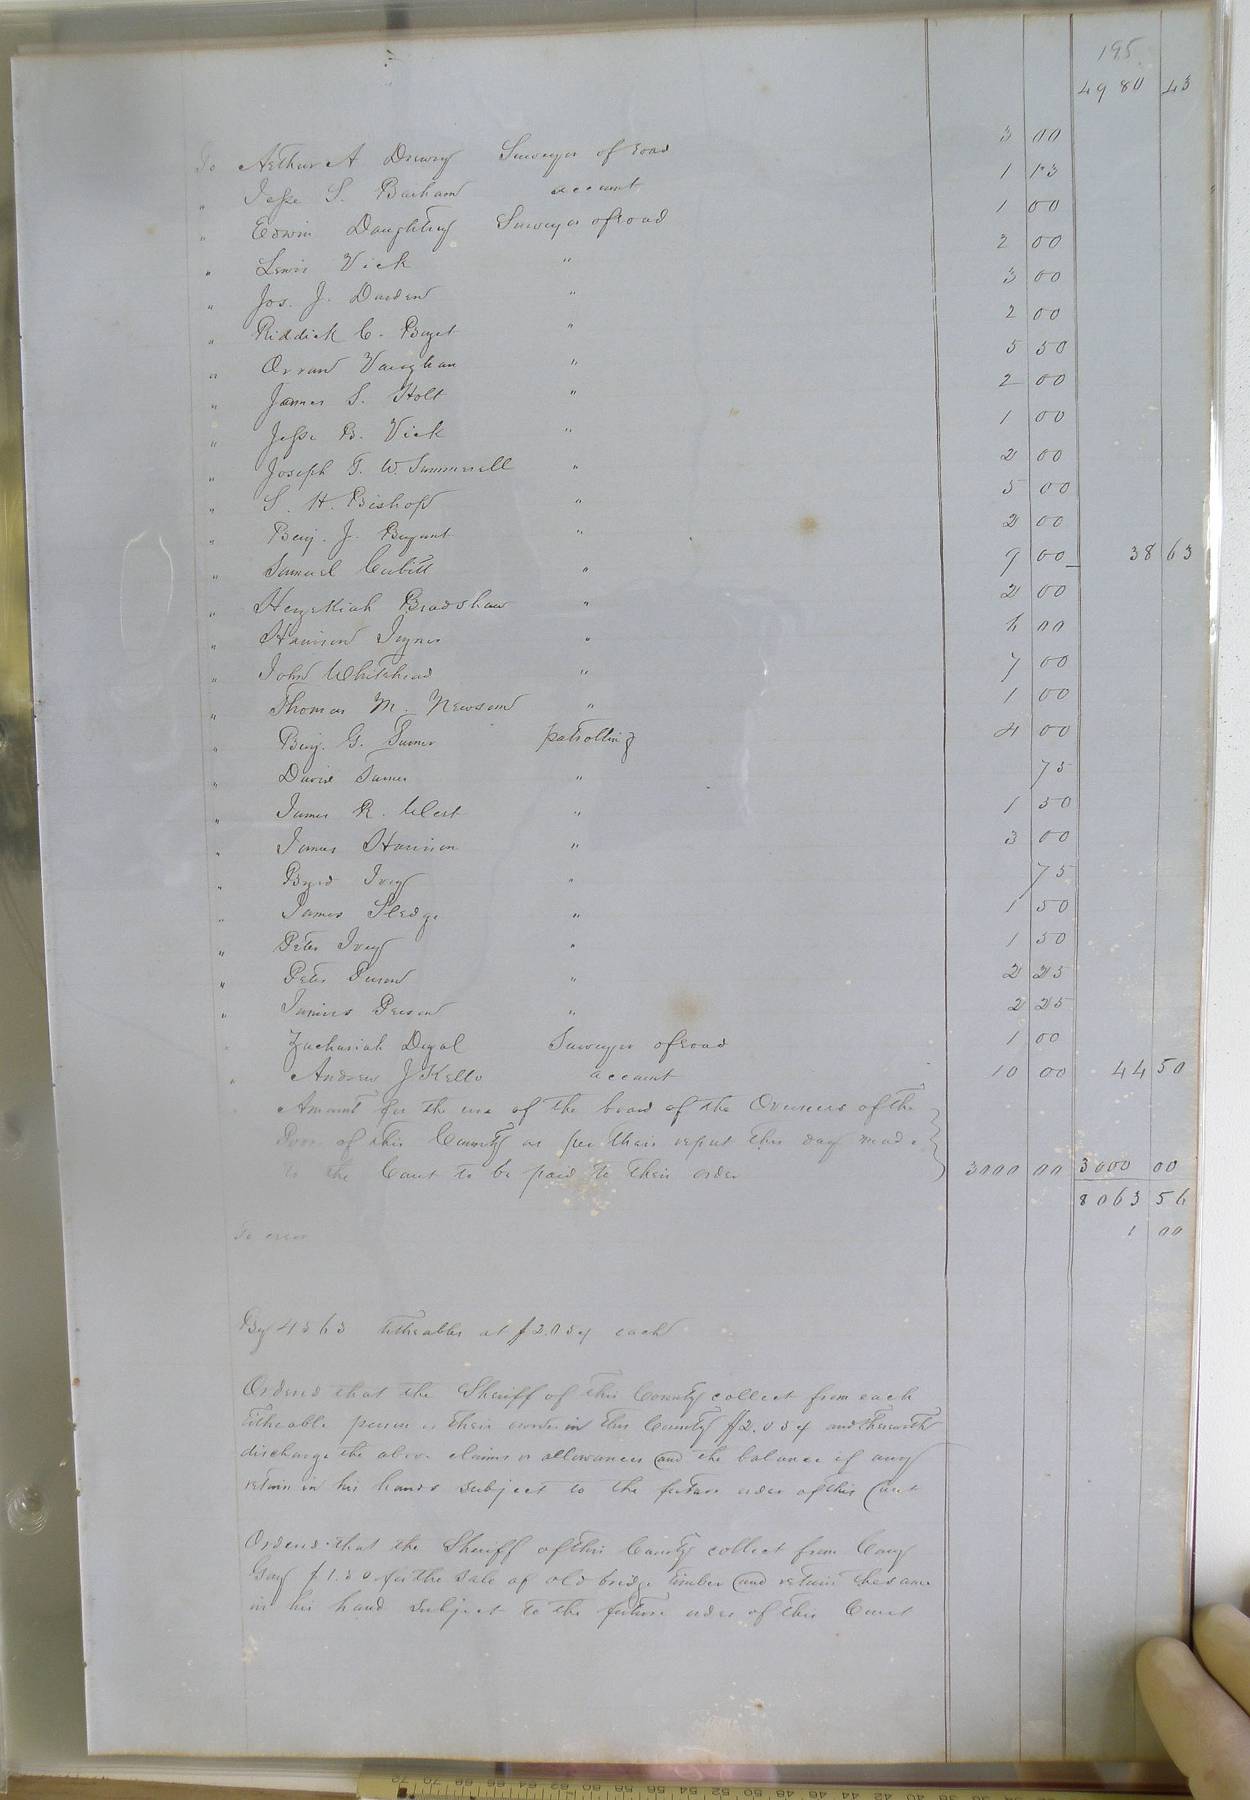 195
4980 43
To Arthur A Drewry Surveyor of road 3 00
" Jesse S. Barham account 1 13
" Edwin Daughtrey Surveyor of road 1 00
" Lewis Vick " 2 00
" Jos. J. Darden " 3 00
" Riddick C. " 2 00
" Orran Vaughan " 5 50
" James S. Holt " 2 00
" Jesse B. Vick " 1 00
" Joseph T. W. Summerell " 2 00
" S. H. Bishop " 5 00
" Benj. J. Bryant " 2 00
" Samuel Corbitt " 9 00 38 63
" Hezekiah Bradshaw " 2 00
" Harrison Joyner " 6 00
" John Whitehead " 7 00
" Thomas M. Newsom " 1 00
" Benj. G. Turner patrolling 4 00
" David Turner " 75
" James R. West " 1 50
" James Harrison " 3 00
" Byrd Ivey " 75
" James Sledge " 1 50
" Peter Ivey " 1 50
" Peter Person " 2 25
" Junius Person " 2 25
" Zachariah Deyal Surveyor of road 1 00
" Andrew J Kello account 10 00 44 50
" Amount for the use of the board of the Overseers of the
Poor of this County as per their report this day made
to the Court to be paid to their order 3000 00 3000 00
8063 56
To error 1 00
By 4563 titheables at $2.05 each
Ordered that the Sheriff of this County collect from each
titheable person in this County $2.05 and therewith
discharge the above claims or allowances and the balance if any
retain in his hands subject to the future order of this Court
Ordered that the Sheriff of this County collect from
Gay $1.50 for the sale of old bridge timber and retain the same
in his hand subject to the future order of this Court